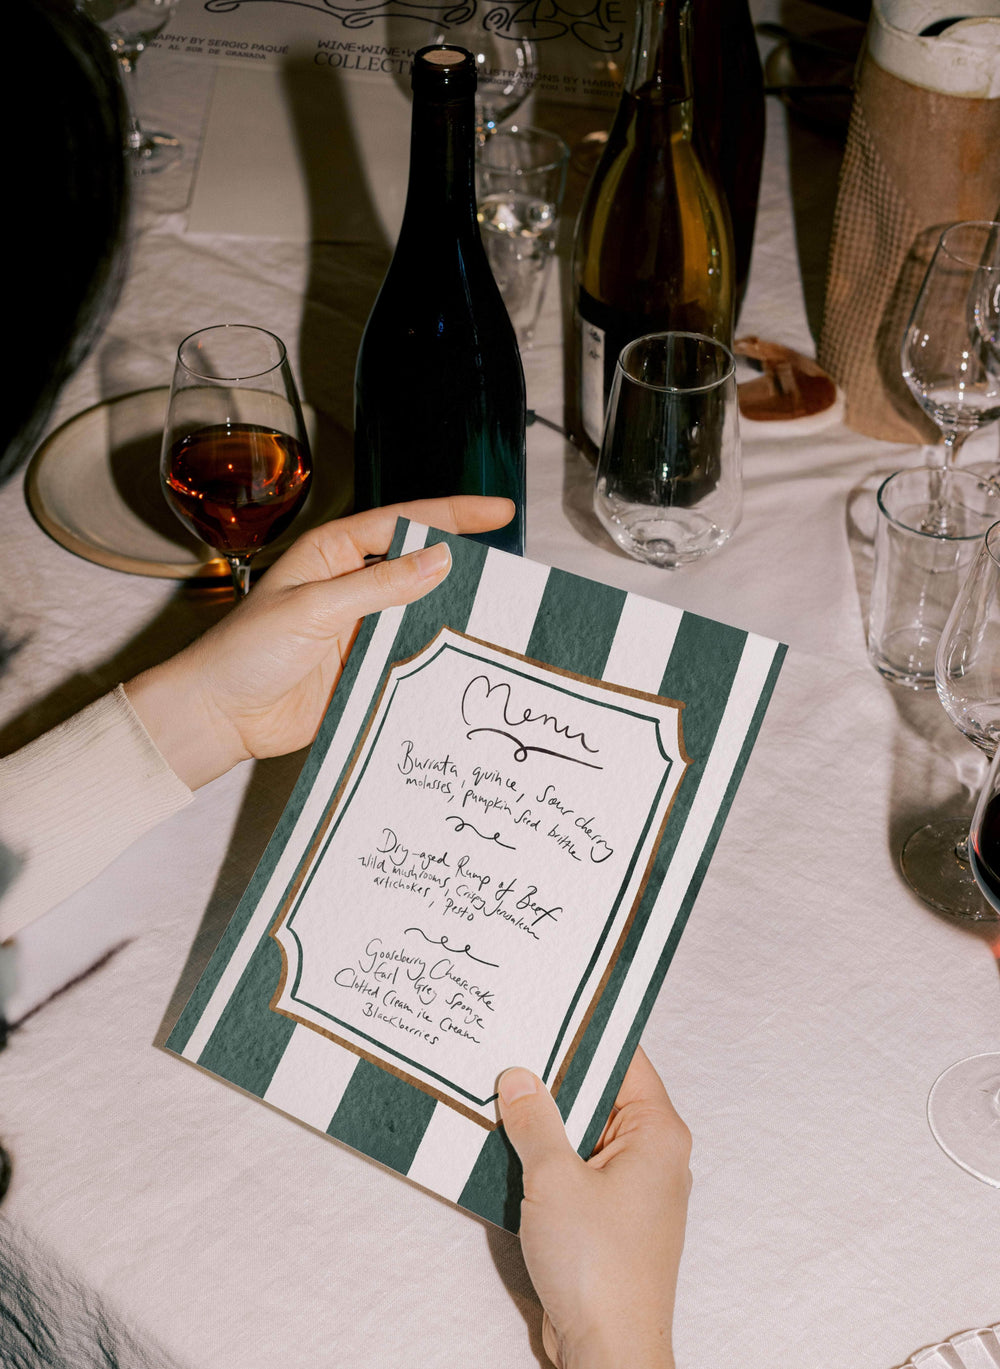 GRAPHY BY SERGIO PAQUÉ
AL SUR DE GRANADA
WINE•WINE•W
COLLECT
LUSTRATIONS BY HARRY
YOU BY
Menu
Burrata, quince, Sour cherry
molasses, pumpkin seed brittle
Dry-aged Rump of Beef
wild mushrooms, Crispy Jerusalem
artichokes, Pesto
Gooseberry Cheesecake
Earl Grey Sponge
Clotted Cream ice Cream
Blackberries